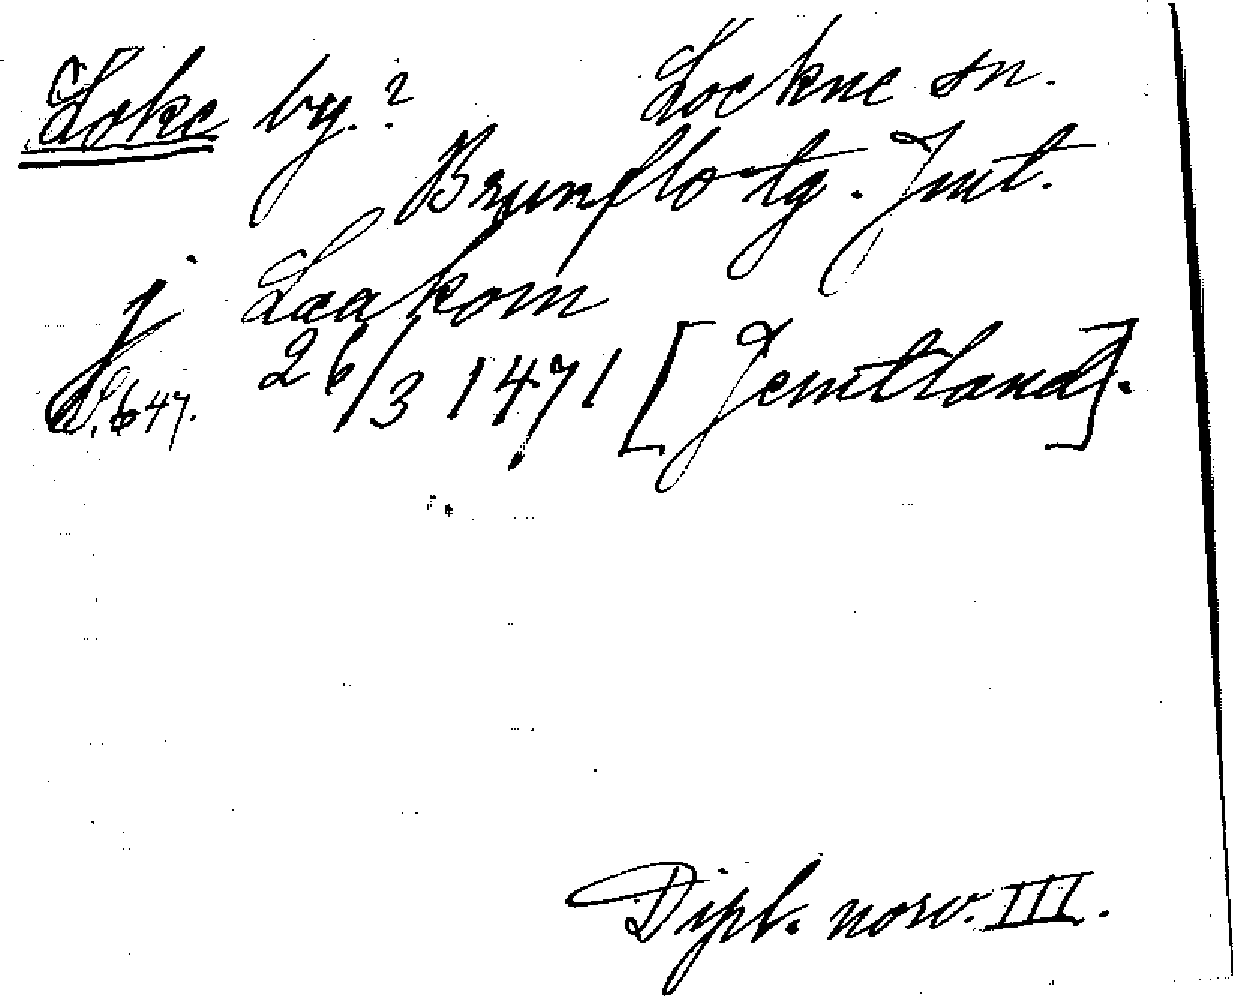 Loke by.? Lockne sn.
Brunflo tg. Jmt.
j Laakom
26/3 1471 [Jemtland].
S. 647.
Dipl. norv. III.